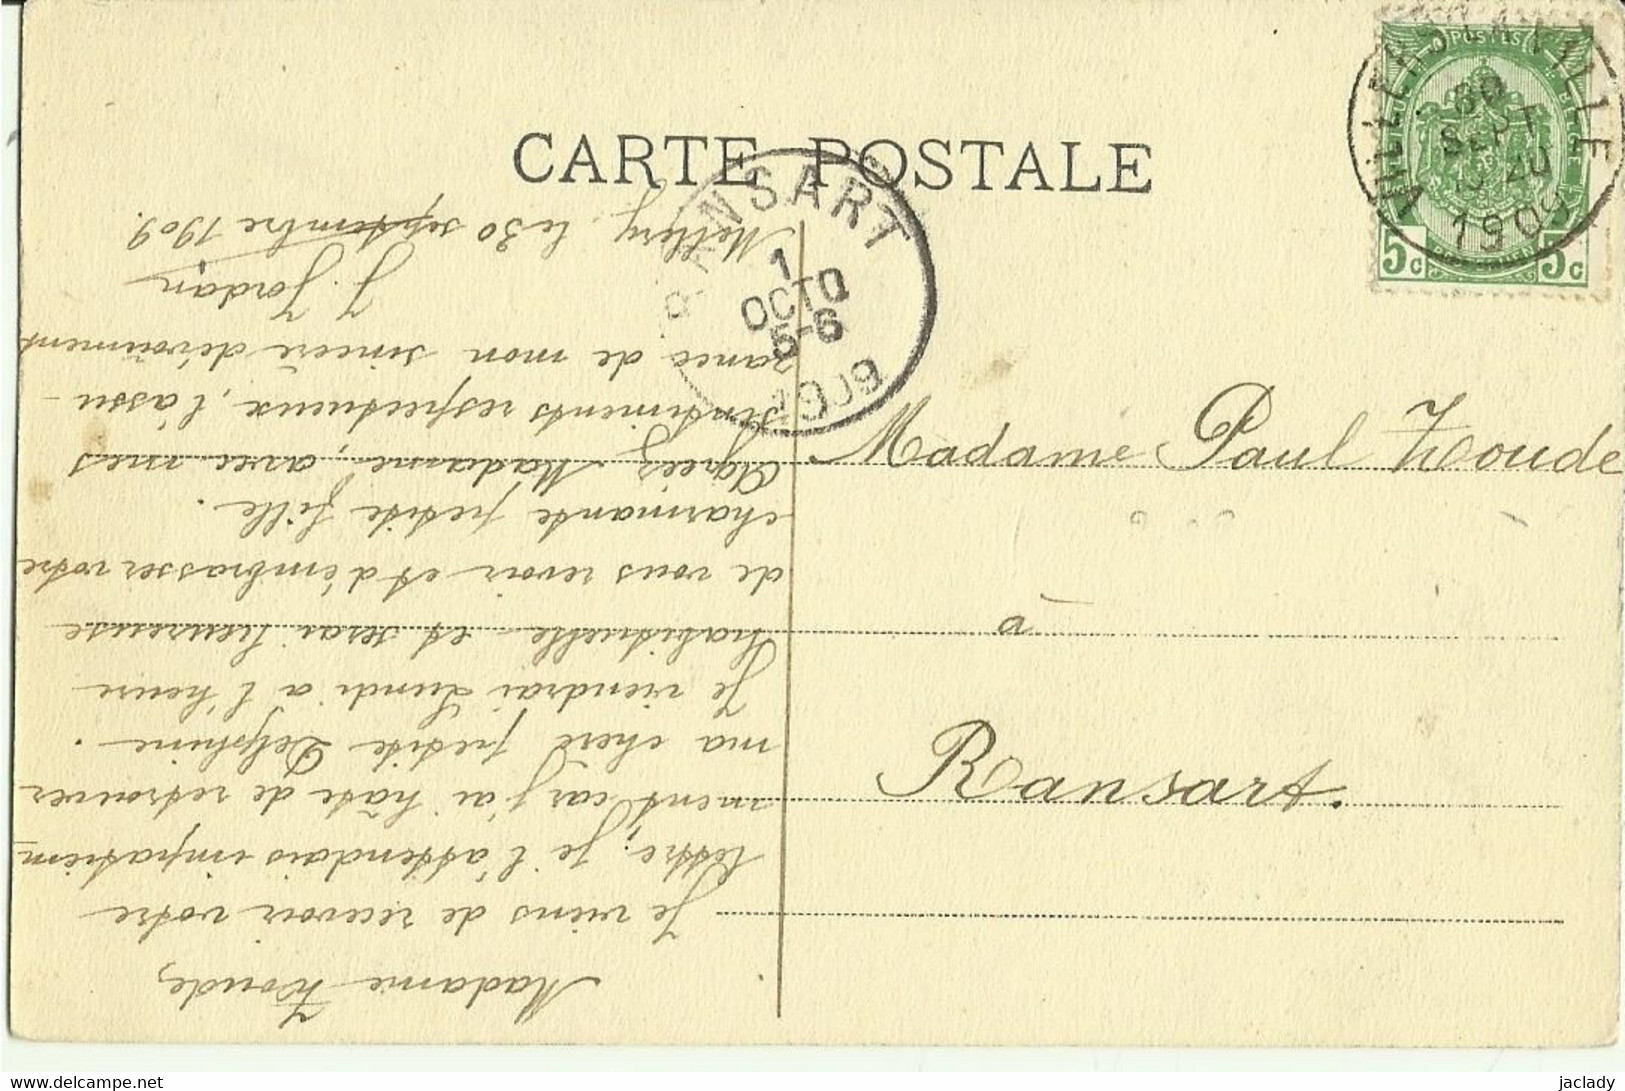 CARTE POSTALE
POSTES
5c 5c
VILLERS LA VILLE
30
SEPT
1909
RANSART
1
OCTO
5-6
1909
Madame Paul Houde
à
Ransart.
Madame Houde,
Je viens de recevoir votre
lettre; je l'attendais impatiem-
ment car j'ai hâte de retrouver
ma chère petite Delphine.
Je viendrai Lundi à l'heure
habituelle et serai heureuse
de vous revoir et d'embrasser votre
charmante petite fille.
Agréez Madame, avec mes
sentiments respectueux, l'assu-
rance de mon sincère dévoûment
J. Jordan
Mellery, le 30 septembre 1909.
delcampe.net
jaclady